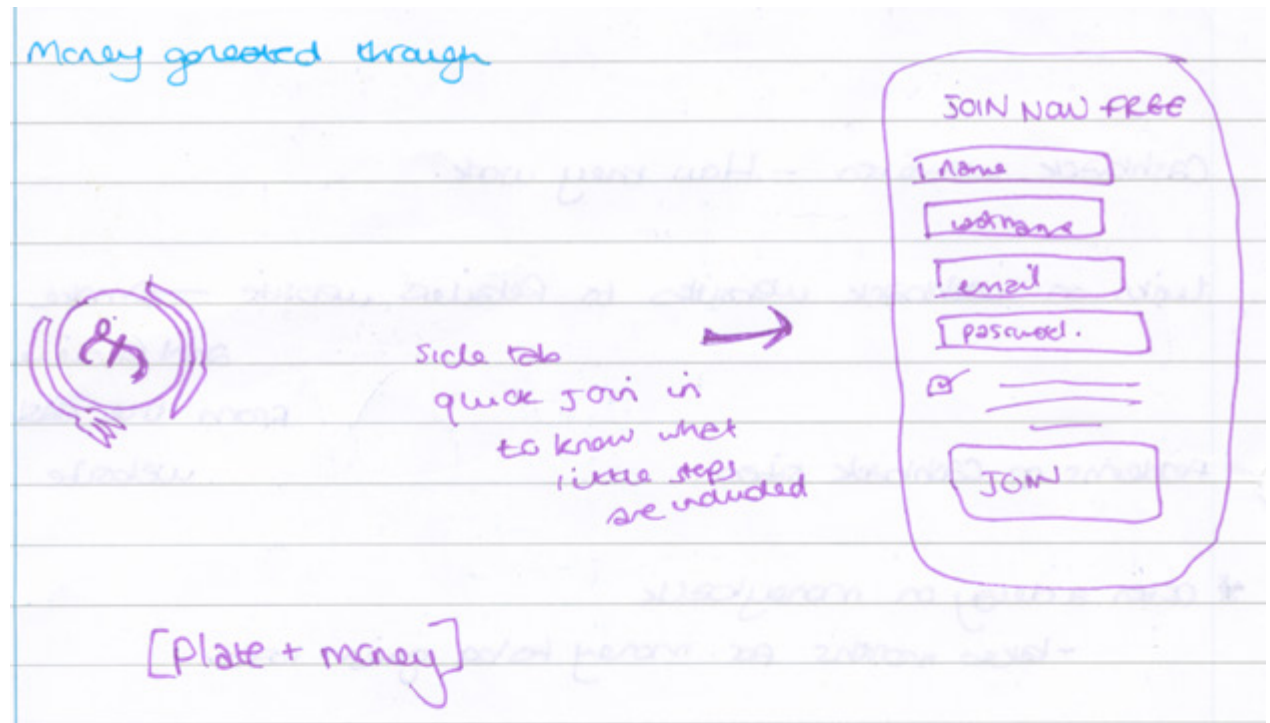 Money generated through
JOIN NOW FREE
name
username
email
password.
£
Side tab
quick join in
to know what
little steps
are included
JOIN
[Plate + money]